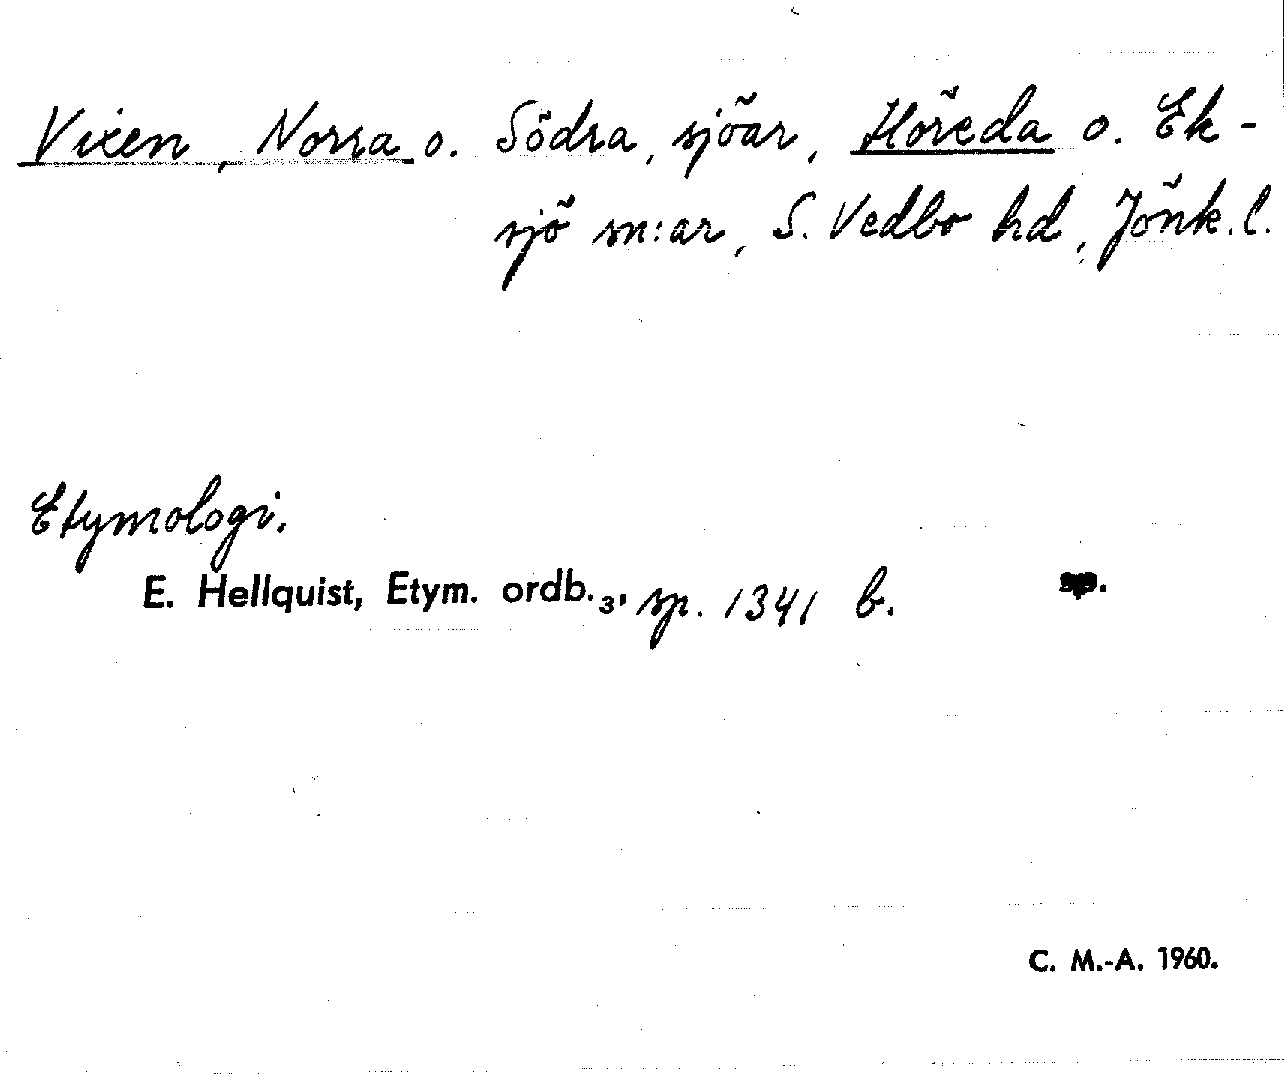 Vixen, Norra o. Södra, sjöar, Höreda o. Ek-
sjö sn:ar, S. Vedbo hd, Jönk. l.
Etymologi.
E. Hellquist, Etym. ordb.₃, sp. 1341 b. sp.
C. M.-A. 1960.